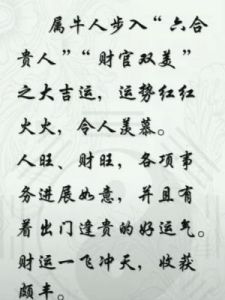 属牛人步入“六合
贵人”“财官双美”
之大吉运，运势红红
火火，令人羡慕。
人旺、财旺，各项事
务进展如意，并且有
着出门逢贵的好运气。
财运一飞冲天，收获
颇丰。